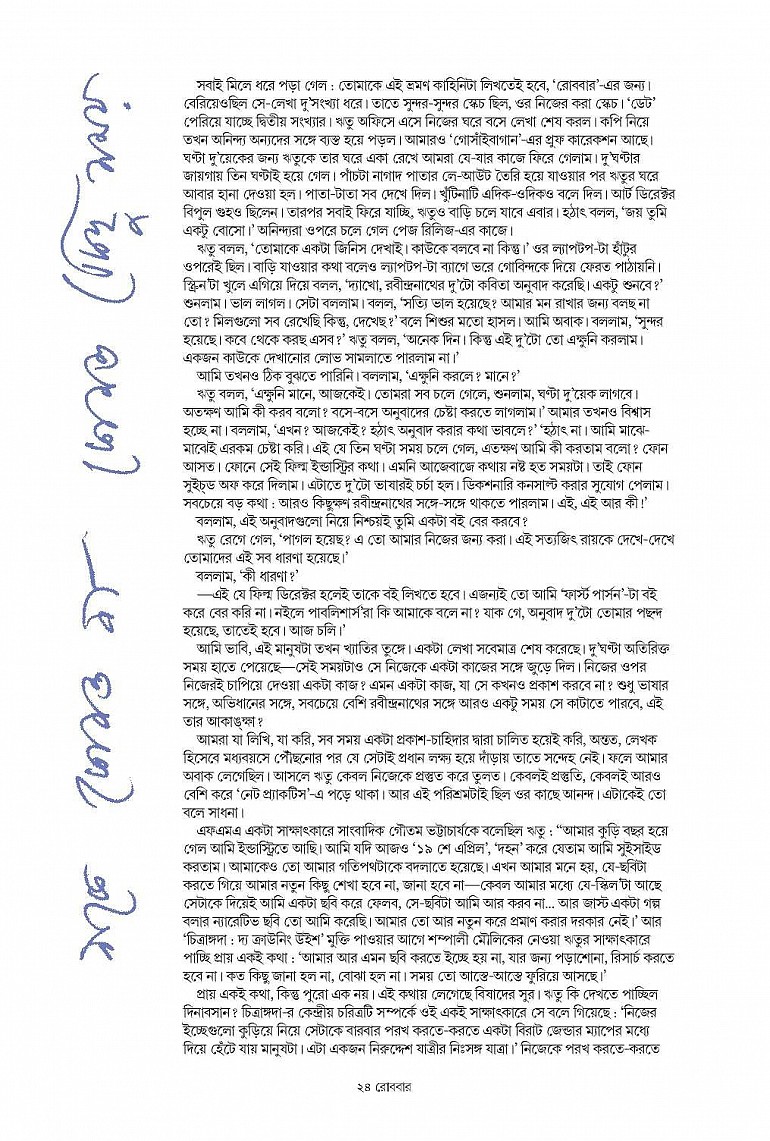 সবাই মিলে ধরে পড়া গেল : তোমাকে এই ভ্রমণ কাহিনিটা লিখতেই হবে, ‘রোববার’-এর জন্য।
বেরিয়েওছিল সে-লেখা দু’সংখ্যা ধরে। তাতে সুন্দর-সুন্দর স্কেচ ছিল, ওর নিজের করা স্কেচ। ‘ডেট’
পেরিয়ে যাচ্ছে দ্বিতীয় সংখ্যার। ঋতু অফিসে এসে নিজের ঘরে বসে লেখা শেষ করল। কপি নিয়ে
তখন অনিন্দ্য অন্যদের সঙ্গে ব্যস্ত হয়ে পড়ল। আমারও ‘গোসাঁইবাগান’-এর প্রুফ কারেকশন আছে।
ঘণ্টা দু’য়েকের জন্য ঋতুকে তার ঘরে একা রেখে আমরা যে-যার কাজে ফিরে গেলাম। দু’ঘণ্টার
জায়গায় তিন ঘণ্টাই হয়ে গেল। পাঁচটা নাগাদ পাতার লে-আউট তৈরি হয়ে যাওয়ার পর ঋতুর ঘরে
আবার হানা দেওয়া হল। পাতা-টাতা সব দেখে দিল। খুঁটিনাটি এদিক-ওদিকও বলে দিল। আর্ট ডিরেক্টর
বিপুল গুহও ছিলেন। তারপর সবাই ফিরে যাচ্ছি, ঋতুও বাড়ি চলে যাবে এবার। হঠাৎ বলল, ‘জয় তুমি
একটু বোসো।’ অনিন্দ্যরা ওপরে চলে গেল পেজ রিলিজ-এর কাজে।
ঋতু বলল, ‘তোমাকে একটা জিনিস দেখাই। কাউকে বলবে না কিন্তু।’ ওর ল্যাপটপ-টা হাঁটুর
ওপরেই ছিল। বাড়ি যাওয়ার কথা বলেও ল্যাপটপ-টা ব্যাগে ভরে গোবিন্দকে দিয়ে ফেরত পাঠায়নি।
স্ক্রিন’টা খুলে এগিয়ে দিয়ে বলল, ‘দ্যাখো, রবীন্দ্রনাথের দু’টো কবিতা অনুবাদ করেছি। একটু শুনবে?’
শুনলাম। ভাল লাগল। সেটা বললাম। বলল, ‘সত্যি ভাল হয়েছে? আমার মন রাখার জন্য বলছ না
তো? মিলগুলো সব রেখেছি কিন্তু, দেখেছ?’ বলে শিশুর মতো হাসল। আমি অবাক। বললাম, ‘সুন্দর
হয়েছে। কবে থেকে করছ এসব?’ ঋতু বলল, ‘অনেক দিন। কিন্তু এই দু’টো তো এক্ষুনি করলাম।
একজন কাউকে দেখানোর লোভ সামলাতে পারলাম না।’
আমি তখনও ঠিক বুঝতে পারিনি। বললাম, ‘এক্ষুনি করলে? মানে?’
ঋতু বলল, ‘এক্ষুনি মানে, আজকেই। তোমরা সব চলে গেলে, শুনলাম, ঘণ্টা দু’য়েক লাগবে।
অতক্ষণ আমি কী করব বলো? বসে-বসে অনুবাদের চেষ্টা করতে লাগলাম।’ আমার তখনও বিশ্বাস
হচ্ছে না। বললাম, ‘এখন? আজকেই? হঠাৎ অনুবাদ করার কথা ভাবলে?’ ‘হঠাৎ না। আমি মাঝে-
মাঝেই এরকম চেষ্টা করি। এই যে তিন ঘণ্টা সময় চলে গেল, এতক্ষণ আমি কী করতাম বলো? ফোন
আসত। ফোনে সেই ফিল্ম ইন্ডাস্ট্রির কথা। এমনি আজেবাজে কথায় নষ্ট হত সময়টা। তাই ফোন
সুইচ্‌ড অফ করে দিলাম। এটাতে দু’টো ভাষারই চর্চা হল। ডিকশনারি কনসাল্ট করার সুযোগ পেলাম।
সবচেয়ে বড় কথা : আরও কিছুক্ষণ রবীন্দ্রনাথের সঙ্গে-সঙ্গে থাকতে পারলাম। এই, এই আর কী!’
বললাম, এই অনুবাদগুলো নিয়ে নিশ্চয়ই তুমি একটা বই বের করবে?
ঋতু রেগে গেল, ‘পাগল হয়েছ? এ তো আমার নিজের জন্য করা। এই সত্যজিৎ রায়কে দেখে-দেখে
তোমাদের এই সব ধারণা হয়েছে।’
বললাম, ‘কী ধারণা?’
—এই যে ফিল্ম ডিরেক্টর হলেই তাকে বই লিখতে হবে। এজন্যই তো আমি ‘ফার্স্ট পার্সন’-টা বই
করে বের করি না। নইলে পাবলিশার্স’রা কি আমাকে বলে না? যাক গে, অনুবাদ দু’টো তোমার পছন্দ
হয়েছে, তাতেই হবে। আজ চলি।’
আমি ভাবি, এই মানুষটা তখন খ্যাতির তুঙ্গে। একটা লেখা সবেমাত্র শেষ করেছে। দু’ঘণ্টা অতিরিক্ত
সময় হাতে পেয়েছে—সেই সময়টাও সে নিজেকে একটা কাজের সঙ্গে জুড়ে দিল। নিজের ওপর
নিজেরই চাপিয়ে দেওয়া একটা কাজ? এমন একটা কাজ, যা সে কখনও প্রকাশ করবে না? শুধু ভাষার
সঙ্গে, অভিধানের সঙ্গে, সবচেয়ে বেশি রবীন্দ্রনাথের সঙ্গে আরও একটু সময় সে কাটাতে পারবে, এই
তার আকাঙ্ক্ষা?
আমরা যা লিখি, যা করি, সব সময় একটা প্রকাশ-চাহিদার দ্বারা চালিত হয়েই করি, অন্তত, লেখক
হিসেবে মধ্যবয়সে পৌঁছনোর পর যে সেটাই প্রধান লক্ষ্য হয়ে দাঁড়ায় তাতে সন্দেহ নেই। ফলে আমার
অবাক লেগেছিল। আসলে ঋতু কেবল নিজেকে প্রস্তুত করে তুলত। কেবলই প্রস্তুতি, কেবলই আরও
বেশি করে ‘নেট প্র্যাকটিস’-এ পড়ে থাকা। আর এই পরিশ্রমটাই ছিল ওর কাছে আনন্দ। এটাকেই তো
বলে সাধনা।
এফএমএ একটা সাক্ষাৎকারে সাংবাদিক গৌতম ভট্টাচার্যকে বলেছিল ঋতু : “আমার কুড়ি বছর হয়ে
গেল আমি ইন্ডাস্ট্রিতে আছি। আমি যদি আজও ‘১৯ শে এপ্রিল’, ‘দহন’ করে যেতাম আমি সুইসাইড
করতাম। আমাকেও তো আমার গতিপথটাকে বদলাতে হয়েছে। এখন আমার মনে হয়, যে-ছবিটা
করতে গিয়ে আমার নতুন কিছু শেখা হবে না, জানা হবে না—কেবল আমার মধ্যে যে-স্কিল’টা আছে
সেটাকে দিয়েই আমি একটা ছবি করে ফেলব, সে-ছবিটা আমি আর করব না... আর জাস্ট একটা গল্প
বলার ন্যারেটিভ ছবি তো আমি করেছি। আমার তো আর নতুন করে প্রমাণ করার দরকার নেই।’ আর
‘চিত্রাঙ্গদা : দ্য ক্রাউনিং উইশ’ মুক্তি পাওয়ার আগে শম্পালী মৌলিকের নেওয়া ঋতুর সাক্ষাৎকারে
পাচ্ছি প্রায় একই কথা : ‘আমার আর এমন ছবি করতে ইচ্ছে হয় না, যার জন্য পড়াশোনা, রিসার্চ করতে
হবে না। কত কিছু জানা হল না, বোঝা হল না। সময় তো আস্তে-আস্তে ফুরিয়ে আসছে।’
প্রায় একই কথা, কিন্তু পুরো এক নয়। এই কথায় লেগেছে বিষাদের সুর। ঋতু কি দেখতে পাচ্ছিল
দিনাবসান? চিত্রাঙ্গদা-র কেন্দ্রীয় চরিত্রটি সম্পর্কে ওই একই সাক্ষাৎকারে সে বলে গিয়েছে : ‘নিজের
ইচ্ছেগুলো কুড়িয়ে নিয়ে সেটাকে বারবার পরখ করতে-করতে একটা বিরাট জেন্ডার ম্যাপের মধ্যে
দিয়ে হেঁটে যায় মানুষটা। এটা একজন নিরুদ্দেশ যাত্রীর নিঃসঙ্গ যাত্রা।’ নিজেকে পরখ করতে-করতে
২৪ রোববার